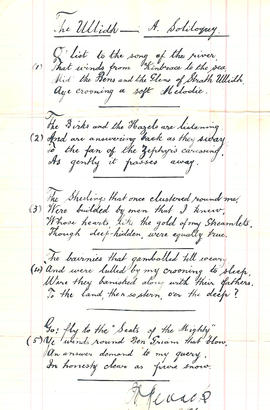 The Ullidh — A Soliloquy.
O' list to the song of the river
(1) That winds from Kinbrace to the sea
Mid the Bens and the Glens of Strath Ullidh
Aye crooning a soft Melodie.
The Birks and the Hazels are listening
(2) And are answering back as they sway
To the fan of the Zephyr's caressing,
As gently it passes away.
The Sheilings that once clustered round me,
(3) Were builded by men that I knew,
Whose hearts, like the gold of my Streamlets,
Though deep-hidden, were equally true.
The bairnies that gambolled till weary
(4) And were lulled by my crooning to sleep,
Were they banished along with their fathers,
To the land, their so stern, o'er the deep?
Go! fly to the "Seats of the Mighty"
(5) Ye winds round Ben Griam that blow,
An answer demand to my query,
In honesty clear as pure snow.